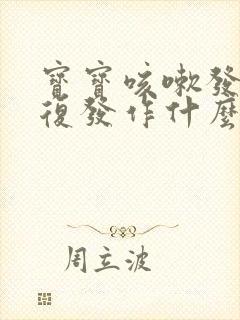 寶寶咳嗽發
復發作什麼
周立波